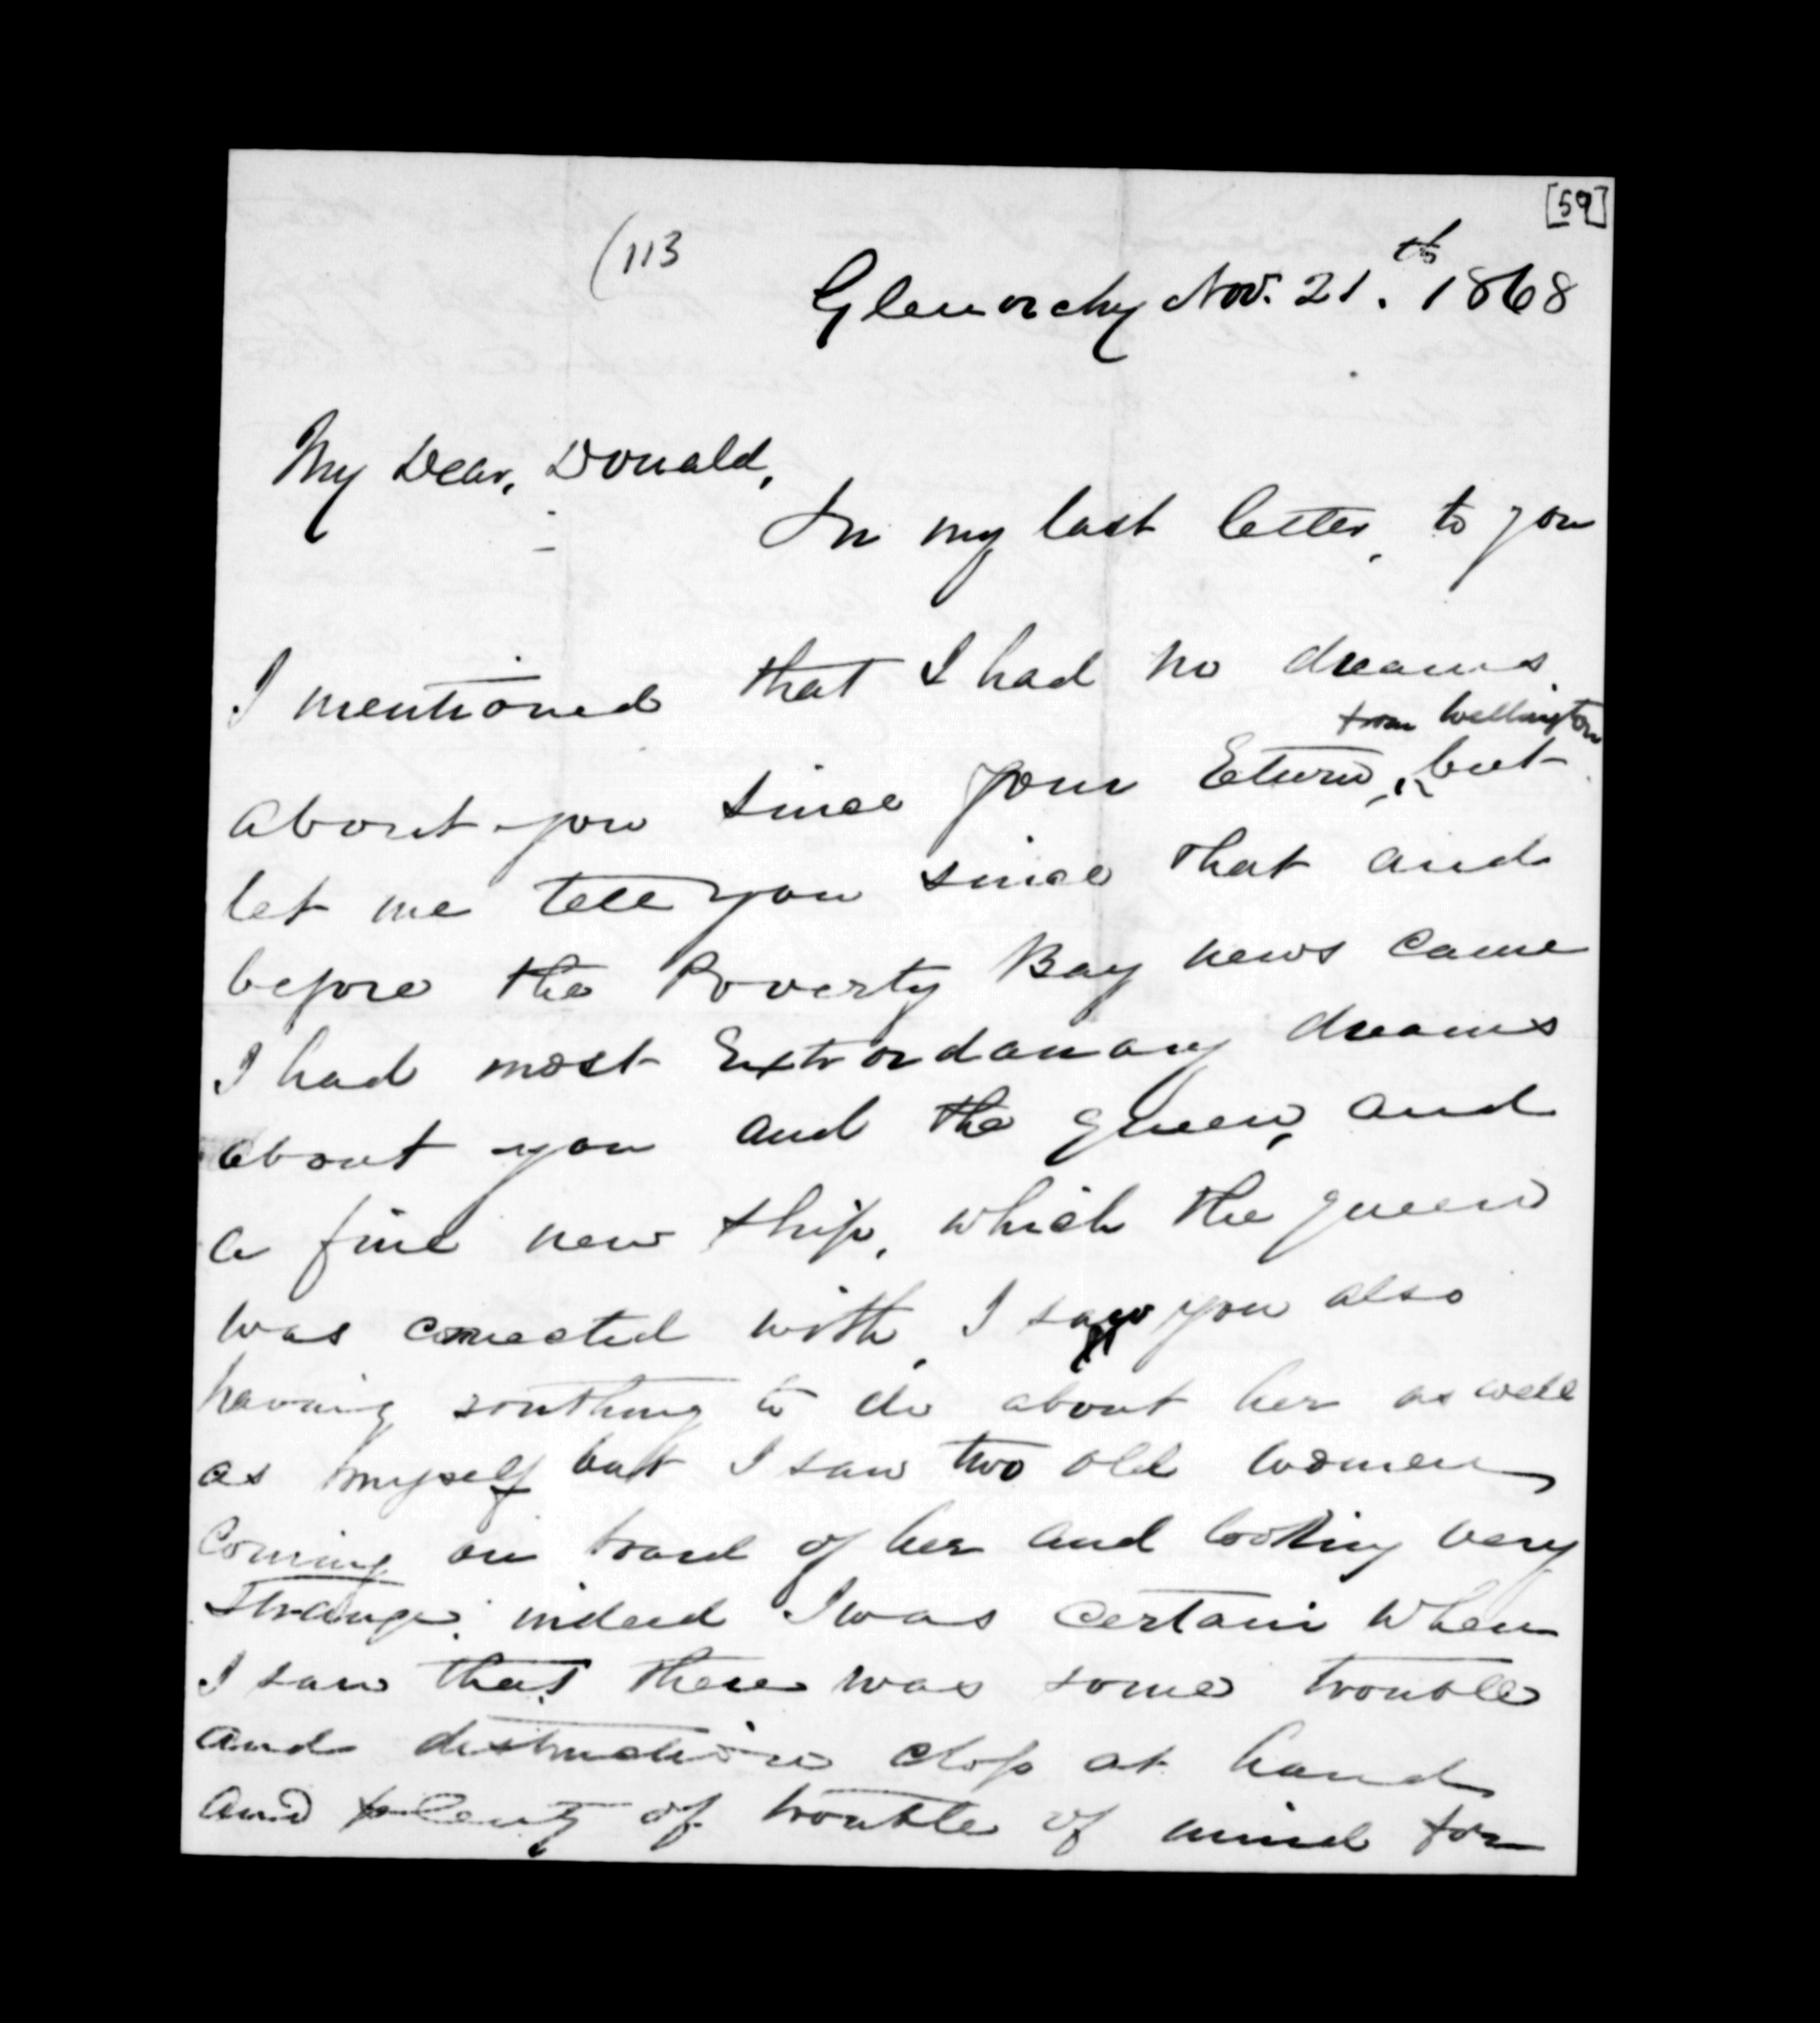 [59]
(113
Glenorchy Nov. 21.th 1868
My Dear, Donald,
In my last letter, to you
I mentioned that I had no dreams
from Wellington
about you since your Eturn, but
let me tell you since that and
before the Poverty Bay news came
I had most Extrordanary dreams
about you and the queen, and
a fine new ship, which the queen
was conected with, I saw you also
having somthing to do about her as well
as myself but I saw two old women
coming on board of her and looking very
strange. indeed I was certain when
I saw that there was some trouble
and distruction close at hand
and plenty of trouble of mind for